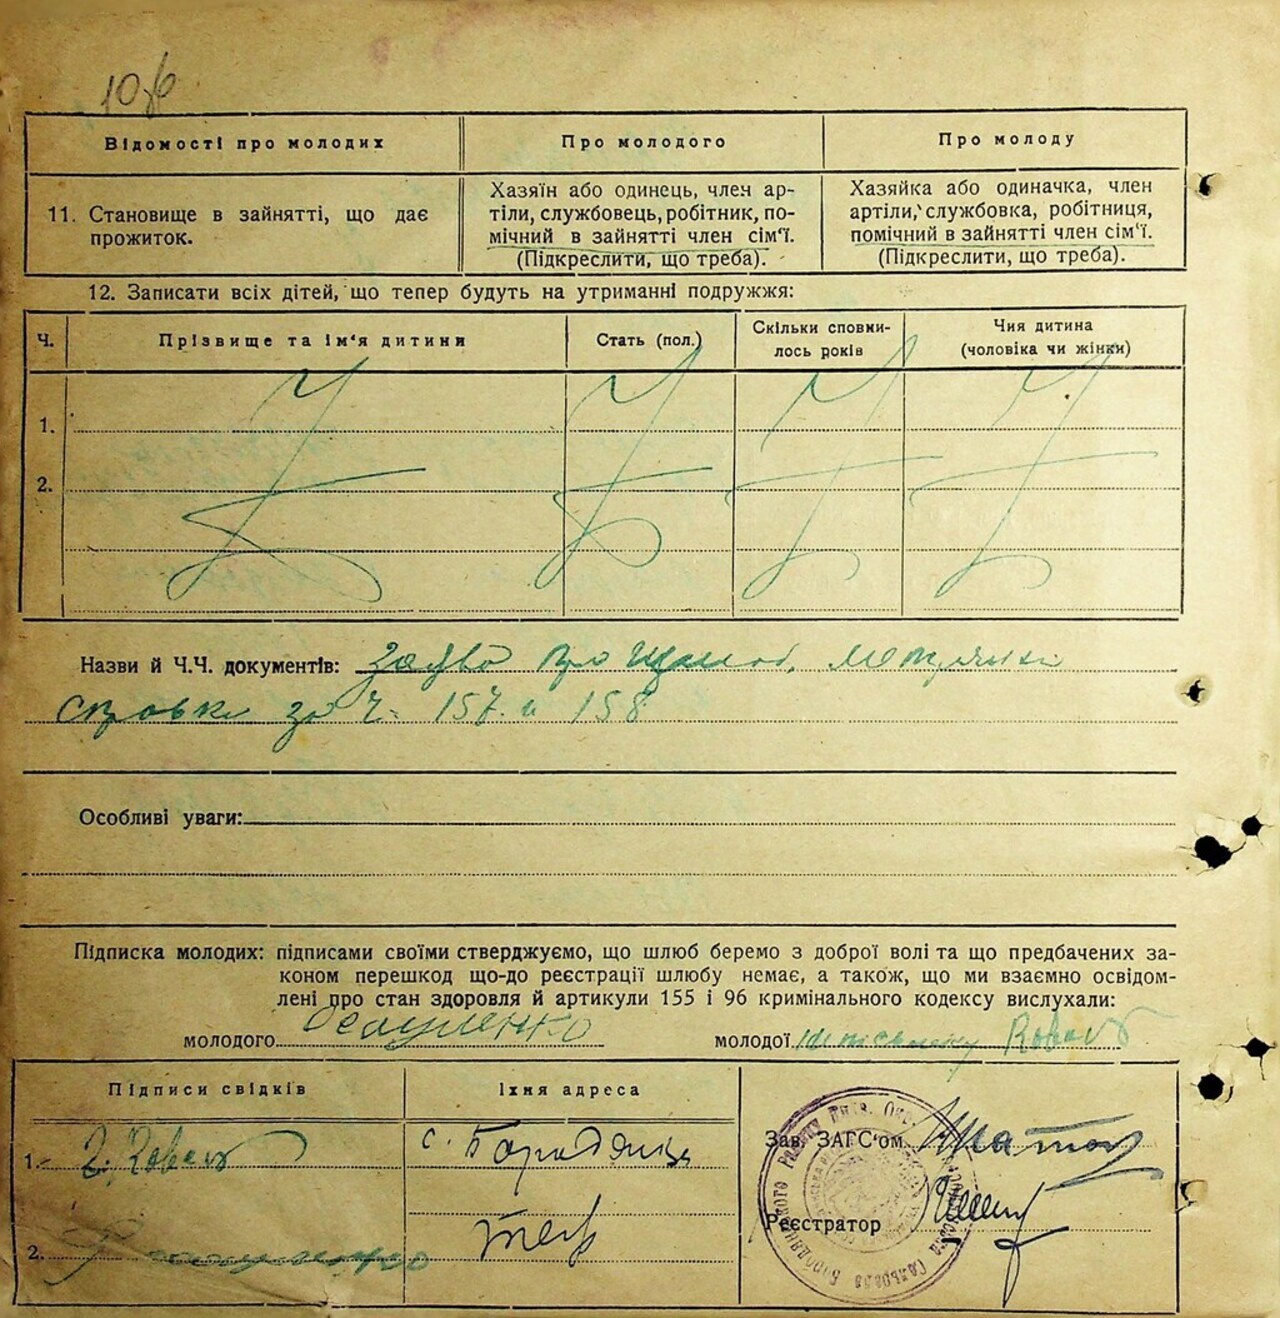 106
Відомості про молодих
Про молодого
Про молоду
11. Становище в зайнятті, що дає
прожиток.
Хазяїн або одинець, член ар-
тіли, службовець, робітник, по-
мічний в зайнятті член сім'ї.
(Підкреслити, що треба).
Хазяйка або одиначка, член
артіли, службовка, робітниця,
помічний в зайнятті член сім'ї.
(Підкреслити, що треба).
12. Записати всіх дітей, що тепер будуть на утриманні подружжя:
Ч.
Прізвище та ім'я дитини
Стать (пол.)
Скільки сповни-
лось років
Чия дитина
(чоловіка чи жінки)
1.
2.
Назви й Ч.Ч. документів: про
за ч. 157 и 158
Особливі уваги:
Підписка молодих: підписами своїми стверджуємо, що шлюб беремо з доброї волі та що предбачених за-
коном перешкод що-до реєстрації шлюбу немає, а також, що ми взаємно освідом-
лені про стан здоровля й артикули 155 і 96 кримінального кодексу вислухали:
молодого
молодої
Підписи свідків
Їхня адреса
1.
с. Бородянка
2.
Зав. ЗАГС'ом
Реєстратор